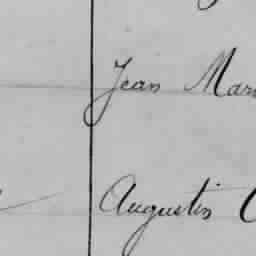 Jean Mar
Augustin